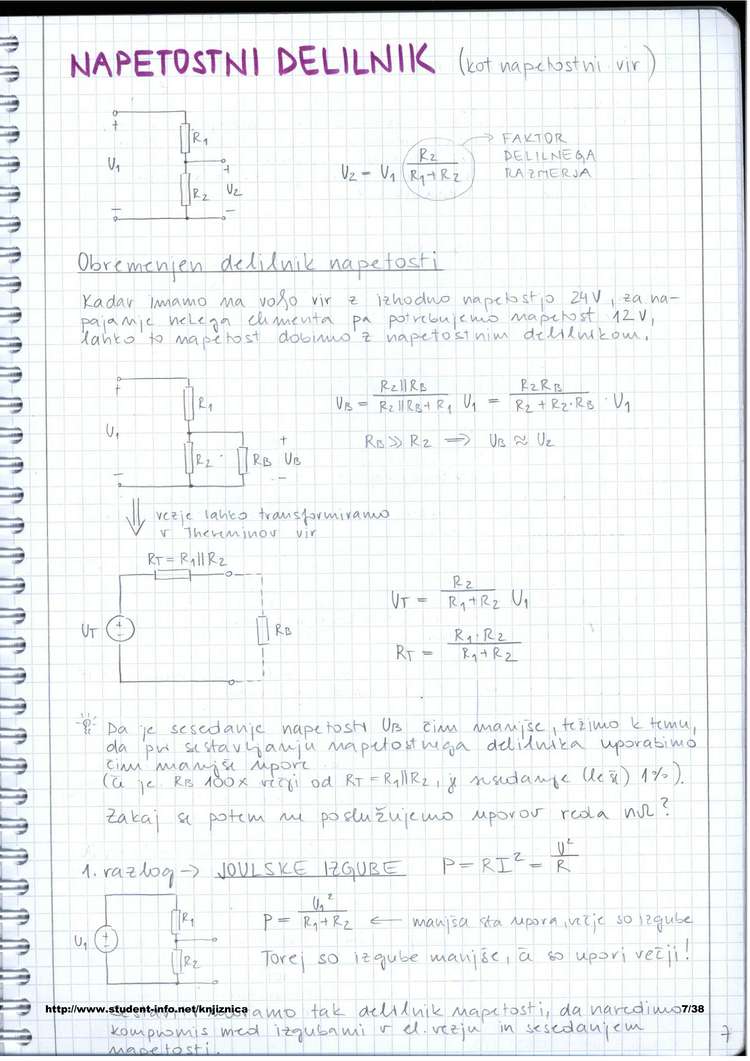 NAPETOSTNI DELILNIK (kot napetostni vir)
+ R1
U1 + R2 U2
- -
U2 = U1 R2 / R1+R2 → FAKTOR
DELILNEGA
RAZMERJA
Obremenjen delilnik napetosti
Kadar imamo na voljo vir z izhodno napetostjo 24V, za na-
pajanje nekega elementa pa potrebujemo napetost 12V,
lahko to napetost dobimo z napetostnim delilnikom.
+ R1
U1 R2 RB + UB -
-
UB = R2||RB / R2||RB + R1 U1 = R2RB / R2 + R2·RB · U1
RB >> R2 ⇒ UB ≈ U2
⇓ vezje lahko transformiramo
v Theveninov vir
RT = R1||R2
UT + - RB
UT = R2 / R1+R2 U1
RT = R1·R2 / R1+R2
Da je sesedanje napetosti UB čim manjše, težimo k temu,
da pri sestavljanju napetostnega delilnika uporabimo
čim manjše upore
(Če je RB 100x večji od RT = R1||R2, je sesedanje (le še) 1%).
Zakaj se potem ne poslužujemo uporov reda nΩ?
1. razlog → JOULSKE IZGUBE P = RI² = U² / R
U1 + - R1
R2
P = U1² / R1+R2 ← manjša sta upora, večje so izgube
Torej so izgube manjše, če so upori večji!
http://www.student-info.net/knjiznica 7/38
moramo tak delilnik napetosti, da naredimo
kompromis med izgubami v el. vezju in sesedanjem
napetosti.
7